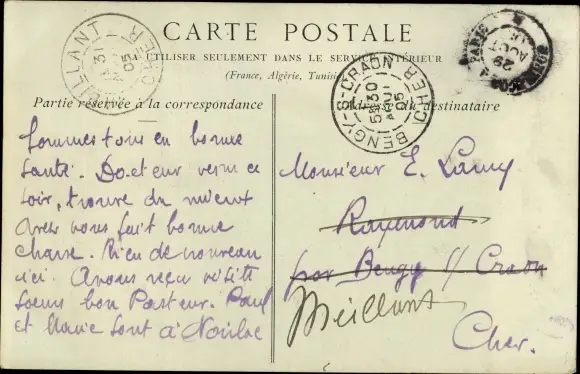 CARTE POSTALE
A UTILISER SEULEMENT DANS LE SERVICE INTÉRIEUR
(France, Algérie, Tunisie
Partie réservée à la correspondance
destinataire
MEILLANT CHER
31
05
BENGY-S-CRAON CHER
5 30
AOUT
05
PARIS
29
AOUT
Sommes tous en bonne
santé. Docteur venu ce
soir, trouve du mieux
Avez vous fait bonne
chasse. Rien de nouveau
ici. Avons reçu visite
soeurs bon Pasteur. Paul
et Marie sont à
Monsieur E. Lamy
Raymond
par Bengy s/ Craon
Meillant
Cher.